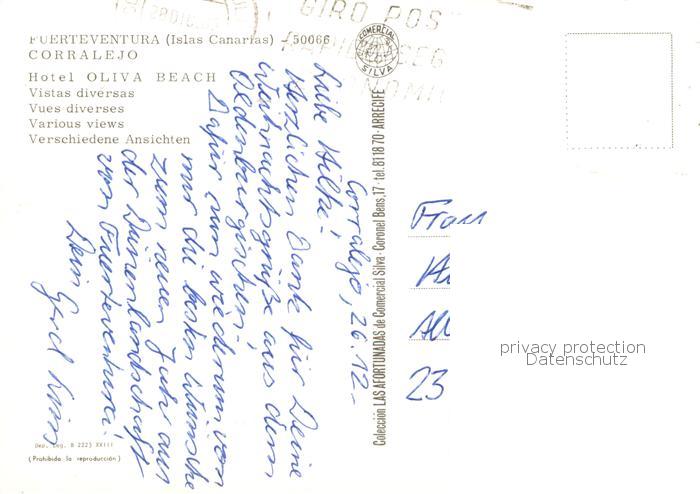 GIRO POS
FUERTEVENTURA (Islas Canarias) - 50066
CORRALEJO
Hotel OLIVA BEACH
Vistas diversas
Vues diverses
Various views
Verschiedene Ansichten
COMERCIAL
SILVA
Corralejo, 26.12.
Liebe Hilke!
Herzlichen Dank für Deine
Weihnachtsgrüße aus dem
Oldenburgischen!
Dafür nun wiederum von
mir die besten Wünsche
zum neuen Jahr aus
der Dünenlandschaft
von Fuerteventura!
Dein Gerd
Colección LAS AFORTUNADAS de Comercial Silva - Coronel Bens, 17 - tel. 81 18 70 - ARRECIFE
Frau
23
privacy protection
Datenschutz
Dep. Leg. B 2223 XXIII
(Prohibida la reproducción)